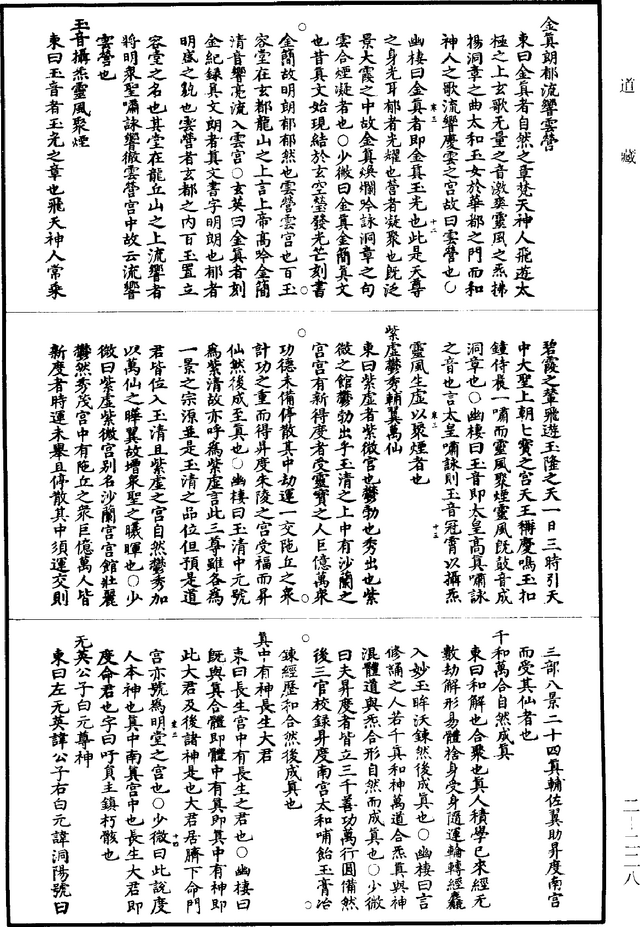 道藏
金真朗郁流響雲營
東曰金真者自然之章梵天神人飛遊太
極之上玄歌无量之音激爽靈風之炁拂
楊洞章之曲太和玉女於華郁之門而和
神人之歌流響慶雲之宮故曰雲營也○
幽棲曰金真者即金真玉光也此是天尊
之身光耳郁者光耀也營者凝聚也既泛
景大霞之中故金真煥爛吟詠洞章之句
雲合煙凝者也○少微曰金真金簡真文
也昔真文始現結於玄空瑩發光芒刻書
金簡故明朗郁郁然也雲營雲宮也百玉
容堂在玄都龍山之上言上帝高吟金簡
清音響亮流入雲宮○玄英曰金真者刻
金紀錄真文朗者真文書字明朗也郁者
明盛之皃也雲營者玄都之內百玉置立
容堂之名也其堂在龍丘山之上流響者
將明衆聖嘯詠響徹雲營宮中故云流響
雲營也
玉音攝炁靈風聚煙
東曰玉音者玉光之章也飛天神人常乘
碧霞之輦飛遊玉隆之天一日三時引天
中大聖上朝七寶之宮天王稱慶鳴玉扣
鍾侍晨一嘯而靈風聚煙靈風既鼓音成
洞章也○幽棲曰玉音即太皇高真嘯詠
之音也言太皇嘯詠則玉音冠霄以攝炁
靈風生虛以聚煙者也
紫虛鬱秀輔翼萬仙
東曰紫虛者紫微宮也鬱勃也秀出也紫
微之館鬱勃出乎玉清之上中有沙蘭之
宮宮有新得度者受靈寶之人巨億萬衆
功德未備停散其中劫運一交阤丘之衆
計功之重而得昇度朱陵之宮受福而昇
仙然後成至真也○幽棲曰玉清中元號
為紫清故亦呼為紫虛言此三尊雖各為
一景之宗源並是玉清之品位但預是道
君皆位入玉清且紫虛之宮自然鬱秀加
以萬仙之曄翼故增衆聖之曦暉也○少
微曰紫虛紫微宮别名沙蘭宮宮館壯麗
鬱然秀茂宮中有阤丘之衆巨億萬人皆
新度者時運未舉且停散其中須運交則
三部八景二十四真輔佐翼助昇度南宮
而受其仙者也
千和萬合自然成真
東曰和解也合聚也真人積學已來經无
數劫解形易體捨身受身隨運輪轉經麤
入妙玉眸沃鍊然後成真也○幽棲曰言
修誦之人若千真和神萬道合炁真與神
混體道與炁合形自然而成真也○少微
曰夫昇度者皆立三千善功萬行圓備然
後三官校録昇度南宮太和哺飴玉膏冶
鍊經歷和合然後成真也
真中有神長生大君
東曰長生宮中有長生之君也○幽棲曰
既與真合體即體中有真即其中有神即
此大君及後諸神是也大君居臍下命門
宮亦號為明堂之宮也○少微曰此說度
人本神也真中南真宮中也長生大君即
度命君也字曰吁員主鎮朽骸也
无英公子白元尊神
東曰左无英諱公子右白元諱洞陽號曰
二—二二八